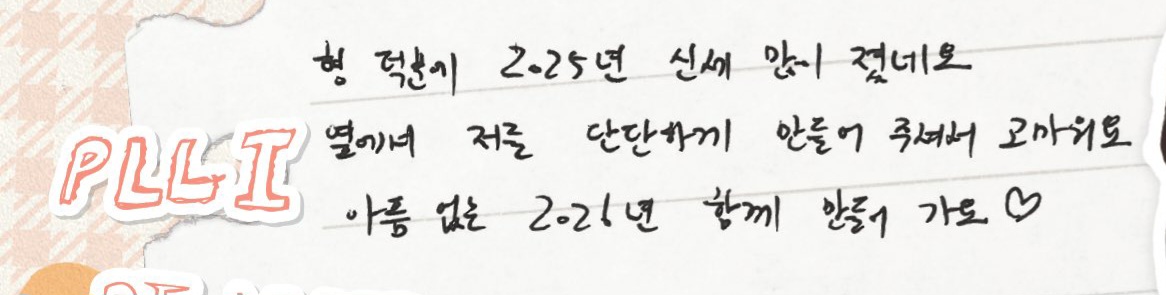 형 덕분에 2025년 신세 많이 졌네요
PLLI
옆에서 저를 단단하게 만들어 주셔서 고마워요
아픔 없는 2026년 함께 만들어 가요♡